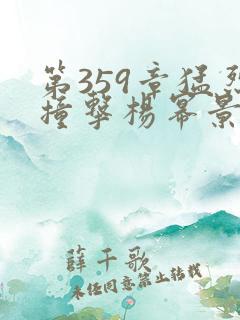 第359章猛烈
撞撃楊幂景
薛千歌
未经同意禁止转载